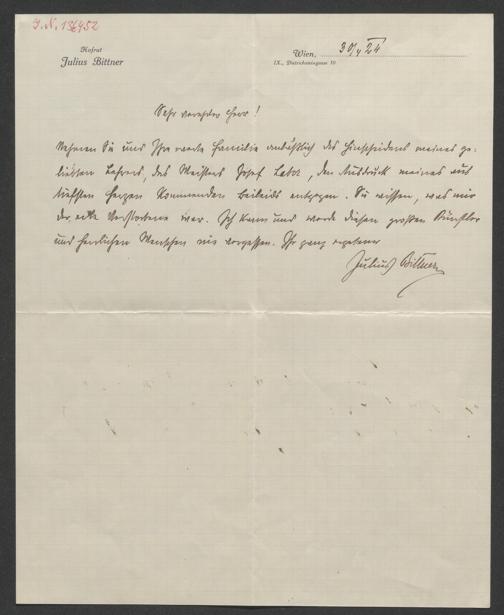 J.N. 136952
Hofrat
Julius Bittner
Wien, 30/V 24
IX., Dietrichsteingasse 10
Sehr verehrter Herr!
Nehmen Sie und Ihre werte Familie anläßlich des Hinscheidens meines ge-
liebten Lehrers, des Meisters Josef Labor, den Ausdruck meines aus
tiefstem Herzen kommenden Beileids entgegen. Sie wissen, was mir
der edle Verstorbene war. Ich kann und werde diesen großen Künstler
und herrlichen Menschen nie vergessen. Ihr ganz ergebener
Julius Bittner